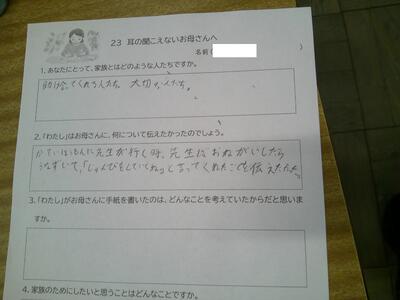 23 耳の聞こえないお母さんへ
名前( )
1. あなたにとって、家族とはどのような人たちですか。
助けてくれる人たち。大切な人たち。
2. 「わたし」はお母さんに、何について伝えたかったのでしょう。
かていほうもんに先生が行く時、先生におねがいしたら
うなずいて、「じゅんびをしていくね」と言ってくれたことを伝えたかった。
3. 「わたし」がお母さんに手紙を書いたのは、どんなことを考えていたからだと思いま
すか。
4. 家族のためにしたいと思うことはどんなことですか。